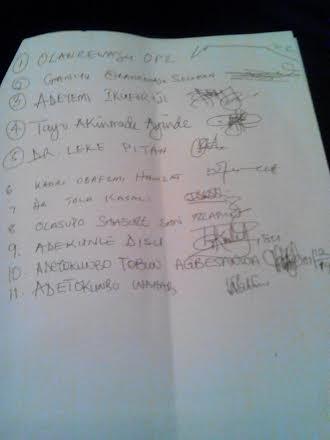 1 OLANREWAJU OPE
2 GANIYU OLANREWAJU SOLOMON
3 ADEYEMI IKUFORIJI
4 Tayo Akinmade Ayinde
5 DR. LEKE PITAN
6 KADRI OBAFEMI HAMZAT
7 DR TOLA KASALI
8 OLASUPO SHASORE SAN
9. ADEKUNLE DISU
10. ADETOKUNBO TOBUN AGBESANWA
11. ADETOKUNBO WAHAB